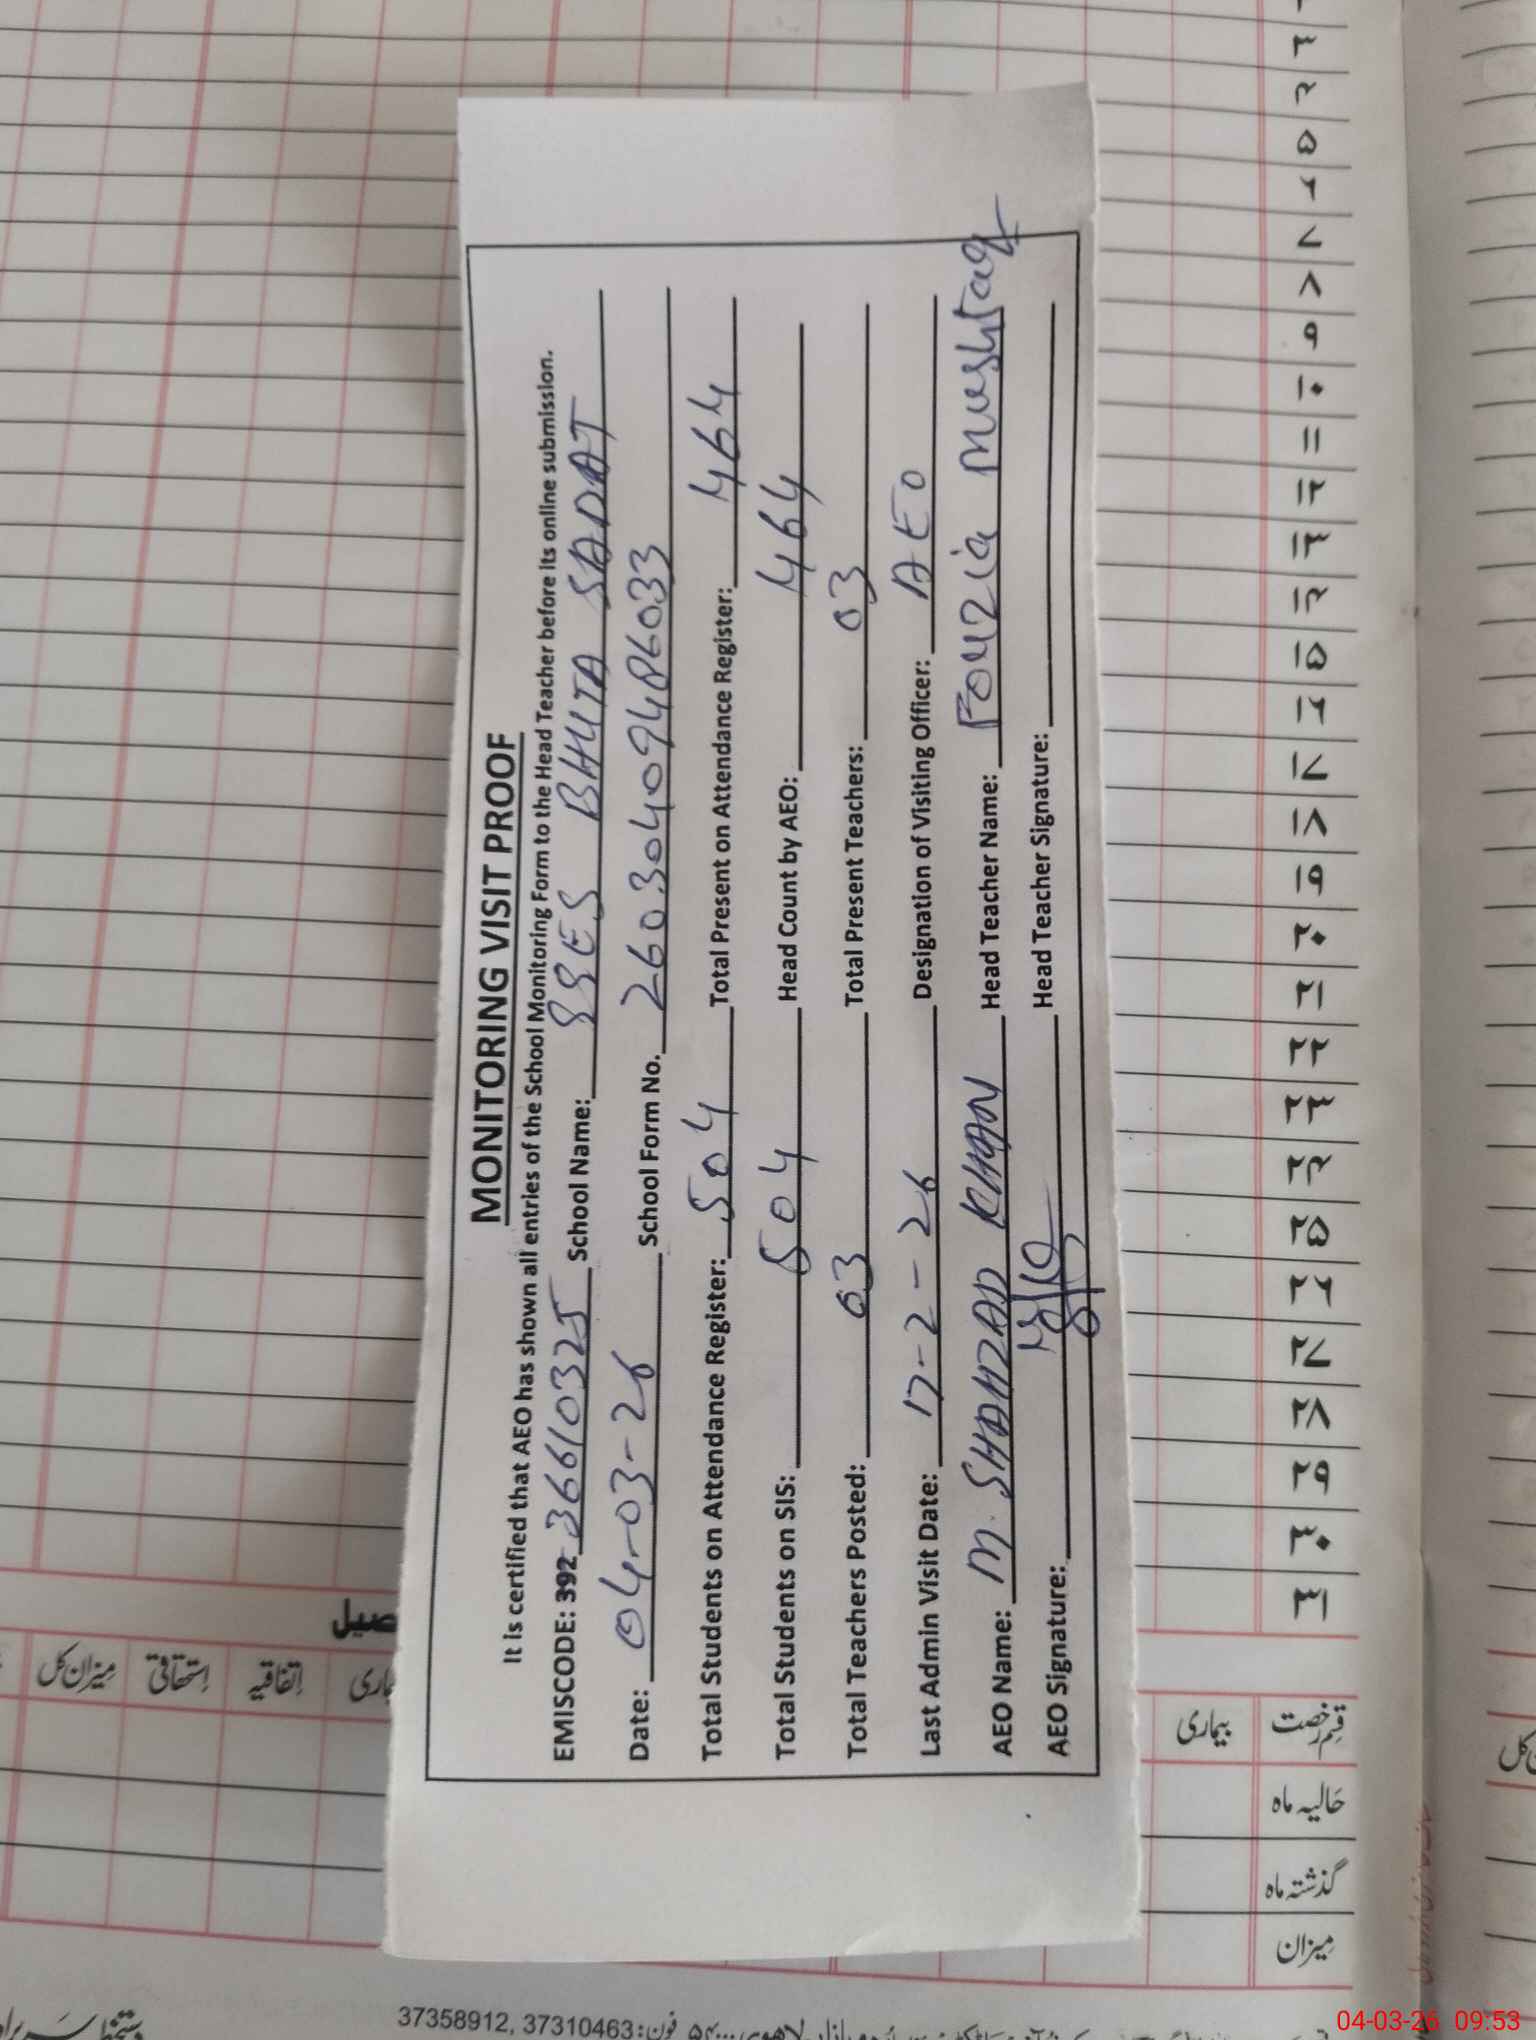 MONITORING VISIT PROOF
It is certified that AEO has shown all entries of the School Monitoring Form to the Head Teacher before its online submission.
EMISCODE: 392 36610325 School Name: GGES BHUTA SADAT
Date: 04-03-26 School Form No. 2603040948 6033
Total Students on Attendance Register: 504 Total Present on Attendance Register: 464
Total Students on SIS: 504 Head Count by AEO: 464
Total Teachers Posted: 03 Total Present Teachers: 03
Last Admin Visit Date: 17-2-26 Designation of Visiting Officer: AEO
AEO Name: M. SHAHZAD KHAN Head Teacher Name: Fouzia mushtaq
AEO Signature: Head Teacher Signature:
۳
۴
۵
۶
۷
۸
۹
۱۰
۱۱
۱۲
۱۳
۱۴
۱۵
۱۶
۱۷
۱۸
۱۹
۲۰
۲۱
۲۲
۲۳
۲۴
۲۵
۲۶
۲۷
۲۸
۲۹
۳۰
۳۱
میزان کل
استحقاقی
اتفاقیہ
قسم رخصت
بیماری
حالیہ ماہ
گذشتہ ماہ
میزان
فون: 37310463 ,37358912
04-03-26 09:53